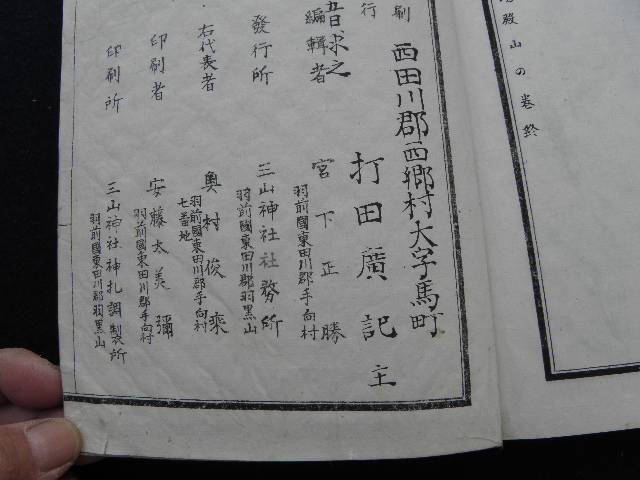 殿山の巻終
刷 西田川郡西郷村大字馬町
行 打田廣記主
昔求之
編輯者 宮下正勝
羽前國東田川郡手向村
發行所 三山神社社務所
羽前國東田川郡羽黒山
右代表者 奥村俊乘
羽前國東田川郡手向村
七番地
印刷者 安藤太美彌
羽前國東田川郡手向村
印刷所 三山神社神札調製所
羽前國東田川郡羽黒山